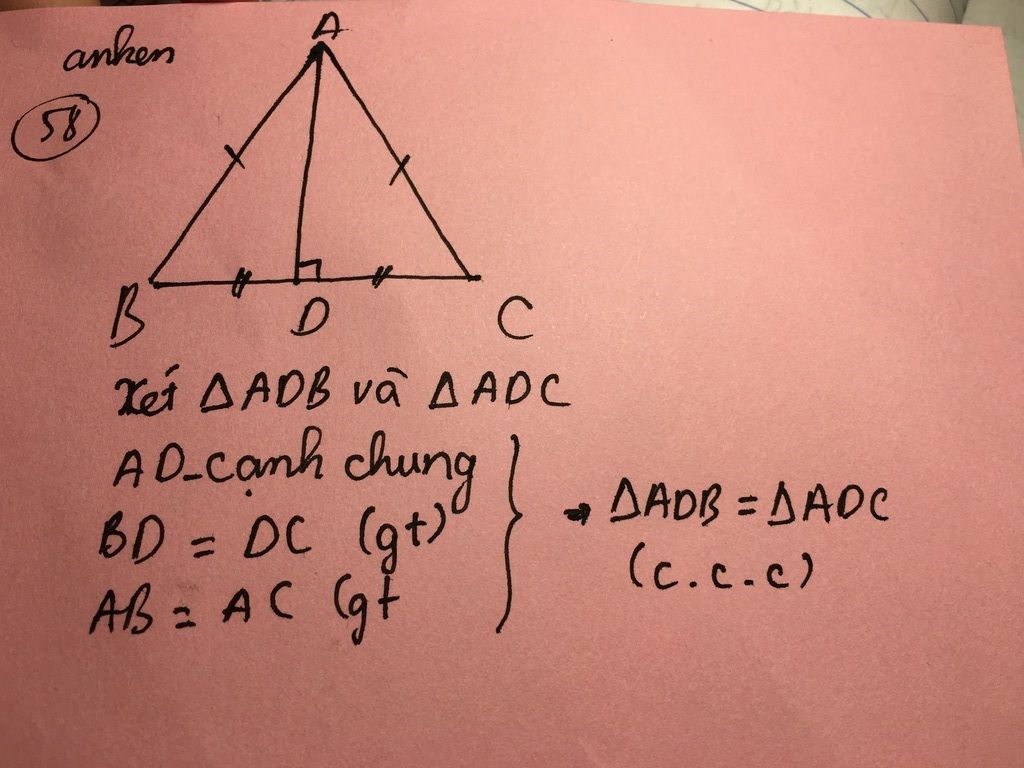 anken
58
A
B D C
Xét ΔADB và ΔADC
AD-cạnh chung
BD = DC (gt)
AB = AC (gt
→ ΔADB = ΔADC
(c.c.c)